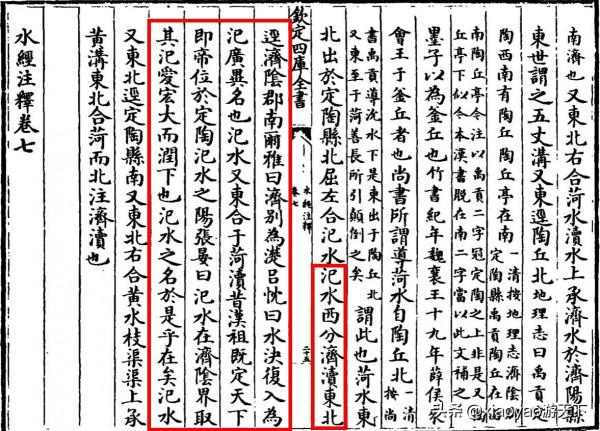 南濟也又東北右合菏水瀆水上承濟水於濟陽縣
東世謂之五丈溝又東逕陶丘北地理志曰禹貢定
陶西南有陶丘陶丘亭在南
一清按地理志濟陰
定陶縣禹貢陶丘在西
南陶丘亭今注以禹貢二字冠定陶之上非是又陶
丘亭下似今本漢書脫在南二字當以此文補之
墨子以為釜丘也竹書紀年魏襄王十九年薛侯來
會王于釜丘者也尚書所謂導菏水自陶丘北
一清
按尚
書禹貢導沇水下是東出于陶丘北
又東至于菏善長所引顛倒之矣
謂此也菏水東
北出於定陶縣北屈左合氾水氾水西分濟瀆東北
欽定四庫全書
水經注釋
卷七
二十五
逕濟陰郡南爾雅曰濟別為濋呂忱曰水決復入為
氾廣異名也氾水又東合于菏瀆昔漢祖既定天下
即帝位於定陶氾水之陽張晏曰氾水在濟陰界取
其氾愛宏大而潤下也氾水之名於是乎在矣氾水
又東北逕定陶縣南又東北右合黄水枝渠渠上承
黄溝東北合菏而北注濟瀆也
水經注釋卷七
头条 @xiaoyao游天下